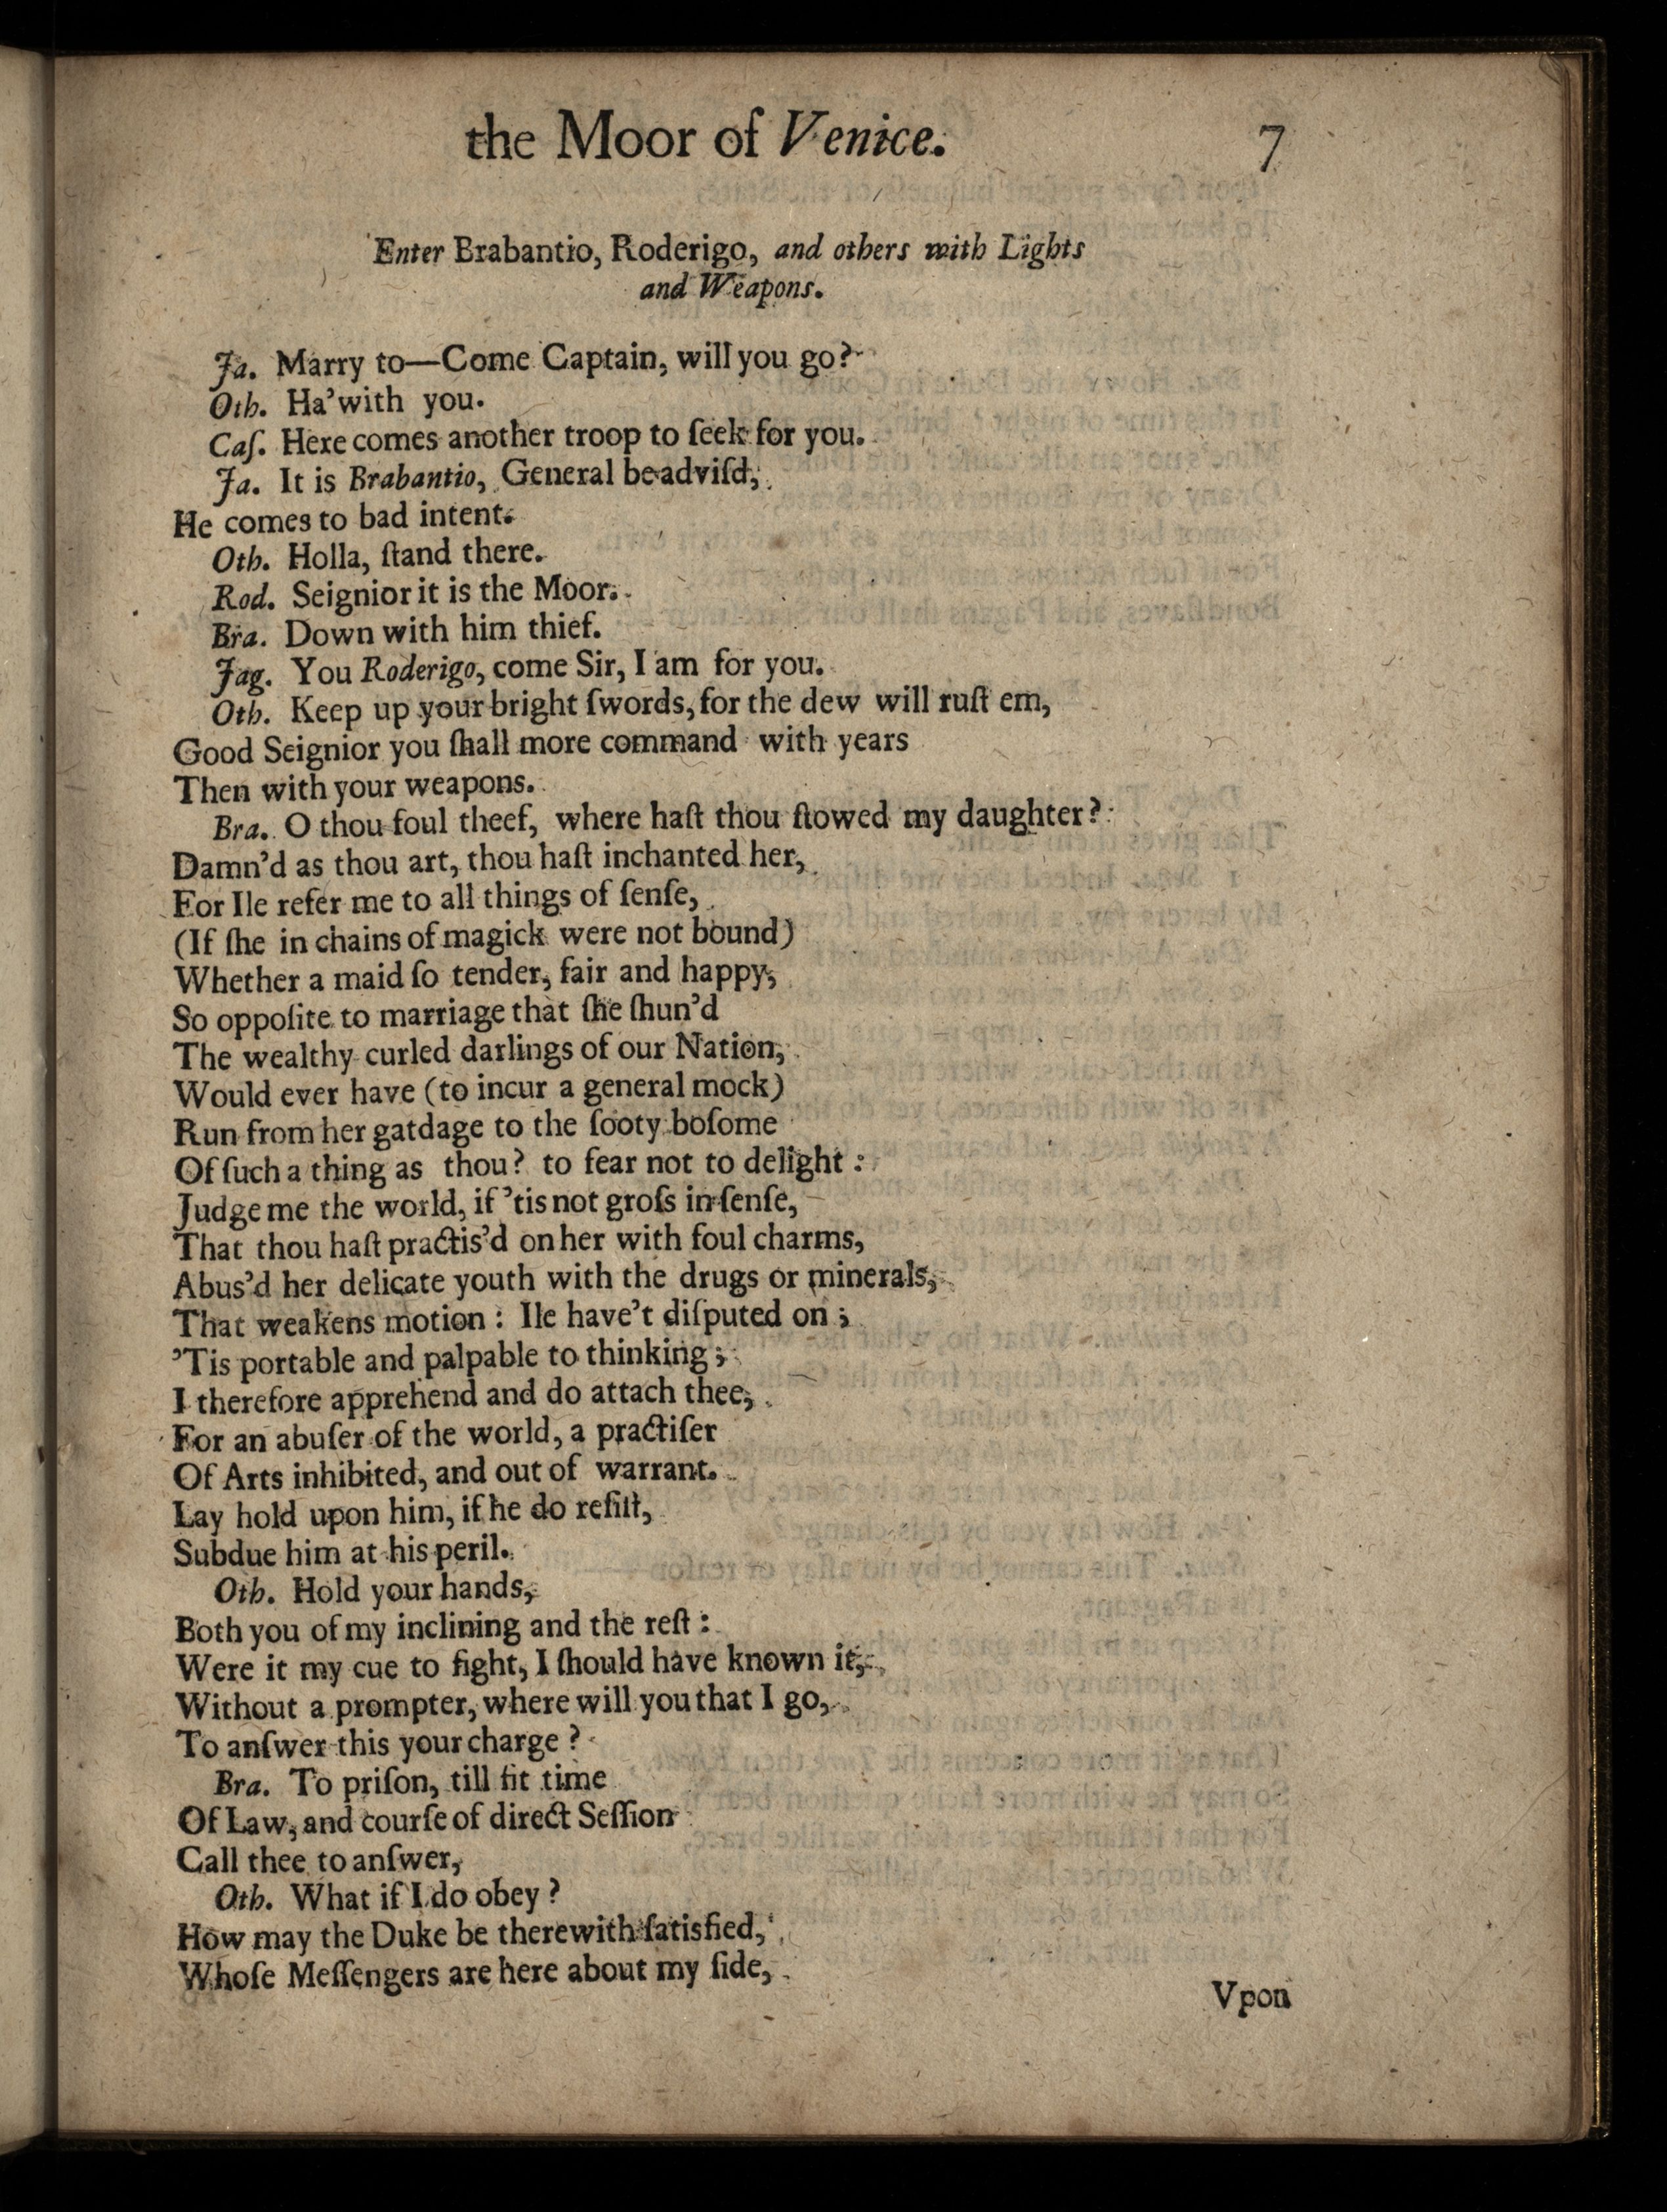 the Moor of Venice. 7
Enter Brabantio, Roderigo, and others with Lights
and Weapons.
Ja. Marry to—Come Captain, will you go?
Oth. Ha'with you.
Caſ. Here comes another troop to ſeek for you.
Ja. It is Brabantio, General be adviſd,
He comes to bad intent.
Oth. Holla, ſtand there.
Rod. Seignior it is the Moor.
Bra. Down with him thief.
Jag. You Roderigo, come Sir, I am for you.
Oth. Keep up your bright ſwords, for the dew will ruſt em,
Good Seignior you ſhall more command with years
Then with your weapons.
Bra. O thou foul theef, where haſt thou ſtowed my daughter?
Damn'd as thou art, thou haſt inchanted her,
For Ile refer me to all things of ſenſe,
(If ſhe in chains of magick were not bound)
Whether a maid ſo tender, fair and happy,
So oppoſite to marriage that ſhe ſhun'd
The wealthy curled darlings of our Nation,
Would ever have (to incur a general mock)
Run from her gatdage to the ſooty boſome
Of ſuch a thing as thou? to fear not to delight:
Judge me the world, if 'tis not groſs in ſenſe,
That thou haſt practis'd on her with foul charms,
Abus'd her delicate youth with the drugs or minerals,
That weakens motion: Ile have't diſputed on;
'Tis portable and palpable to thinking;
I therefore apprehend and do attach thee,
For an abuſer of the world, a practiſer
Of Arts inhibited, and out of warrant.
Lay hold upon him, if he do reſiſt,
Subdue him at his peril.
Oth. Hold your hands,
Both you of my inclining and the reſt:
Were it my cue to fight, I ſhould have known it,
Without a prompter, where will you that I go,
To anſwer this your charge?
Bra. To priſon, till fit time
Of Law, and courſe of direct Seſſion
Call thee to anſwer,
Oth. What if I do obey?
How may the Duke be therewith ſatisfied,
Whoſe Meſſengers are here about my ſide,
Vpon